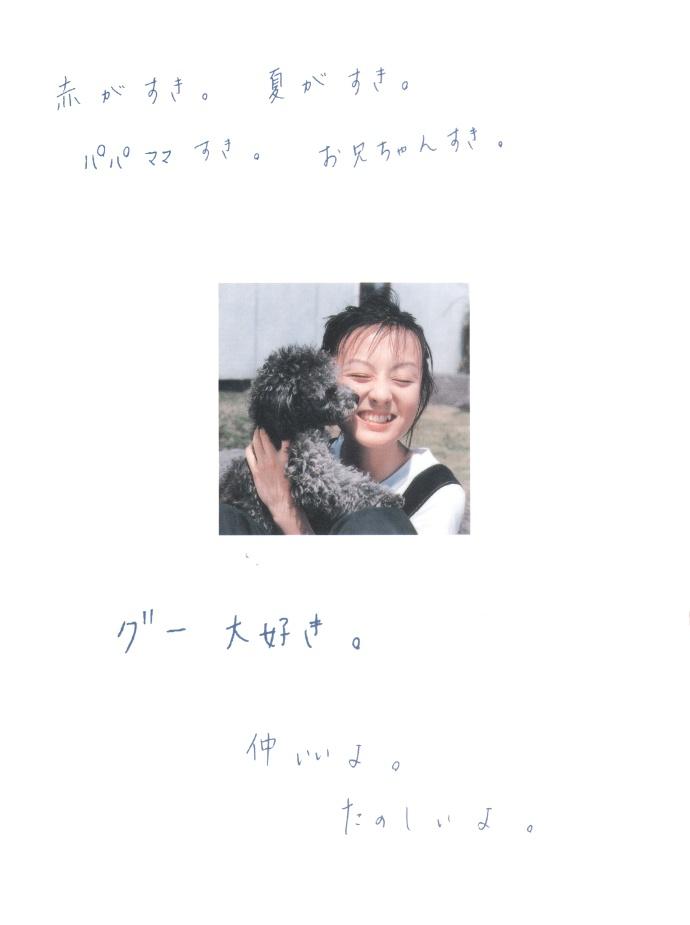 赤がすき。 夏がすき。
パパママすき。 お兄ちゃんすき。
グー大好き。
仲いいよ。
たのしいよ。